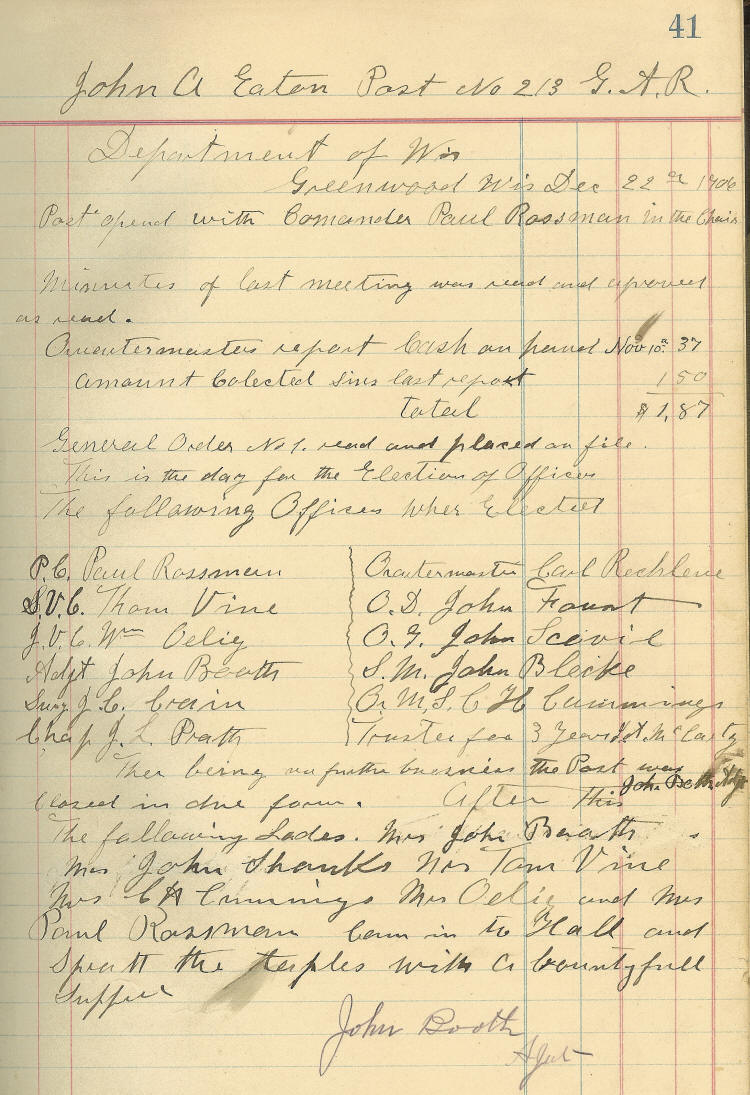 41
John A Eaton Post No 213 G. A. R.
Department of Wis
Greenwood Wis Dec 22 1906
Post opend with Comander Paul Rossman in the Chair
Minuates of last meeting was read and aproved
as read.
Quautermasters report Cash on hand Nov 10. 37
amount Colected sins last report 1 50
total $1,87
General Order No 1. read and placed on file.
This is the day for the Election of Offices
The following Offices wher Elected
P. C. Paul Rossman
S. V. C. Thom Vine
J. V. C. Wm Oelig
Adjt John Booth
Surg J. C. Crain
Chap J. L. Prath
Quatermaster Carl Recklene
O. D. John Faunt
O. G. John Scovil
S. M. John Blecke
Q. M. S. C H Cummings
Trustee for 3 Years McCarty
Ther being no further business the Post was
Closed in due form. John Booth Adjt
After This
The following Lades. Mrs John Booth
Mrs John Shanks Mrs Tom Vine
Mrs C H Cmmings Mrs Oelig and Mrs
Paul Rossman Cam in to Hall and
Spratt the taples with a bountyfull
Supper
John Booth
Ajut